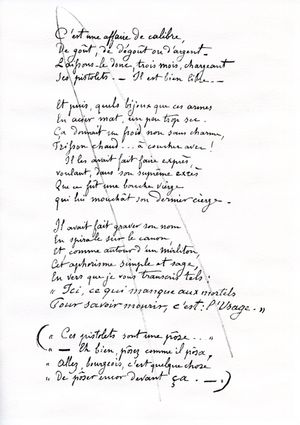 C'est une affaire de calibre,
De goût, de dégoût ou d'argent —
Laissons-le donc, trois mois, chargeant
Ses pistolets. — Il est bien libre. —
Et puis, quels bijoux que ces armes
En acier mat, un peu trop sec.
Ça donnait un froid non sans charme,
Frisson chaud... à coucher avec !
Il les avait fait faire exprès,
voulant, dans son suprême excès
Que ce fût une bouche vierge
qui lui mouchât son dernier cierge —
Il avait fait graver son nom
En spirale sur le canon
Et comme autour d'un mirliton,
Cet aphorisme simple et sage,
En vers que je vous transcris tels :
" Ici, ce qui manque aux mortels
Pour savoir mourir, c'est : l'Usage. "
( " Ces pistolets sont une pôse... "
" — Eh bien, pôsez comme il pôsa,
" Allez, bourgeois, c'est quelque chose
" De pôser encor devant ça. — " )